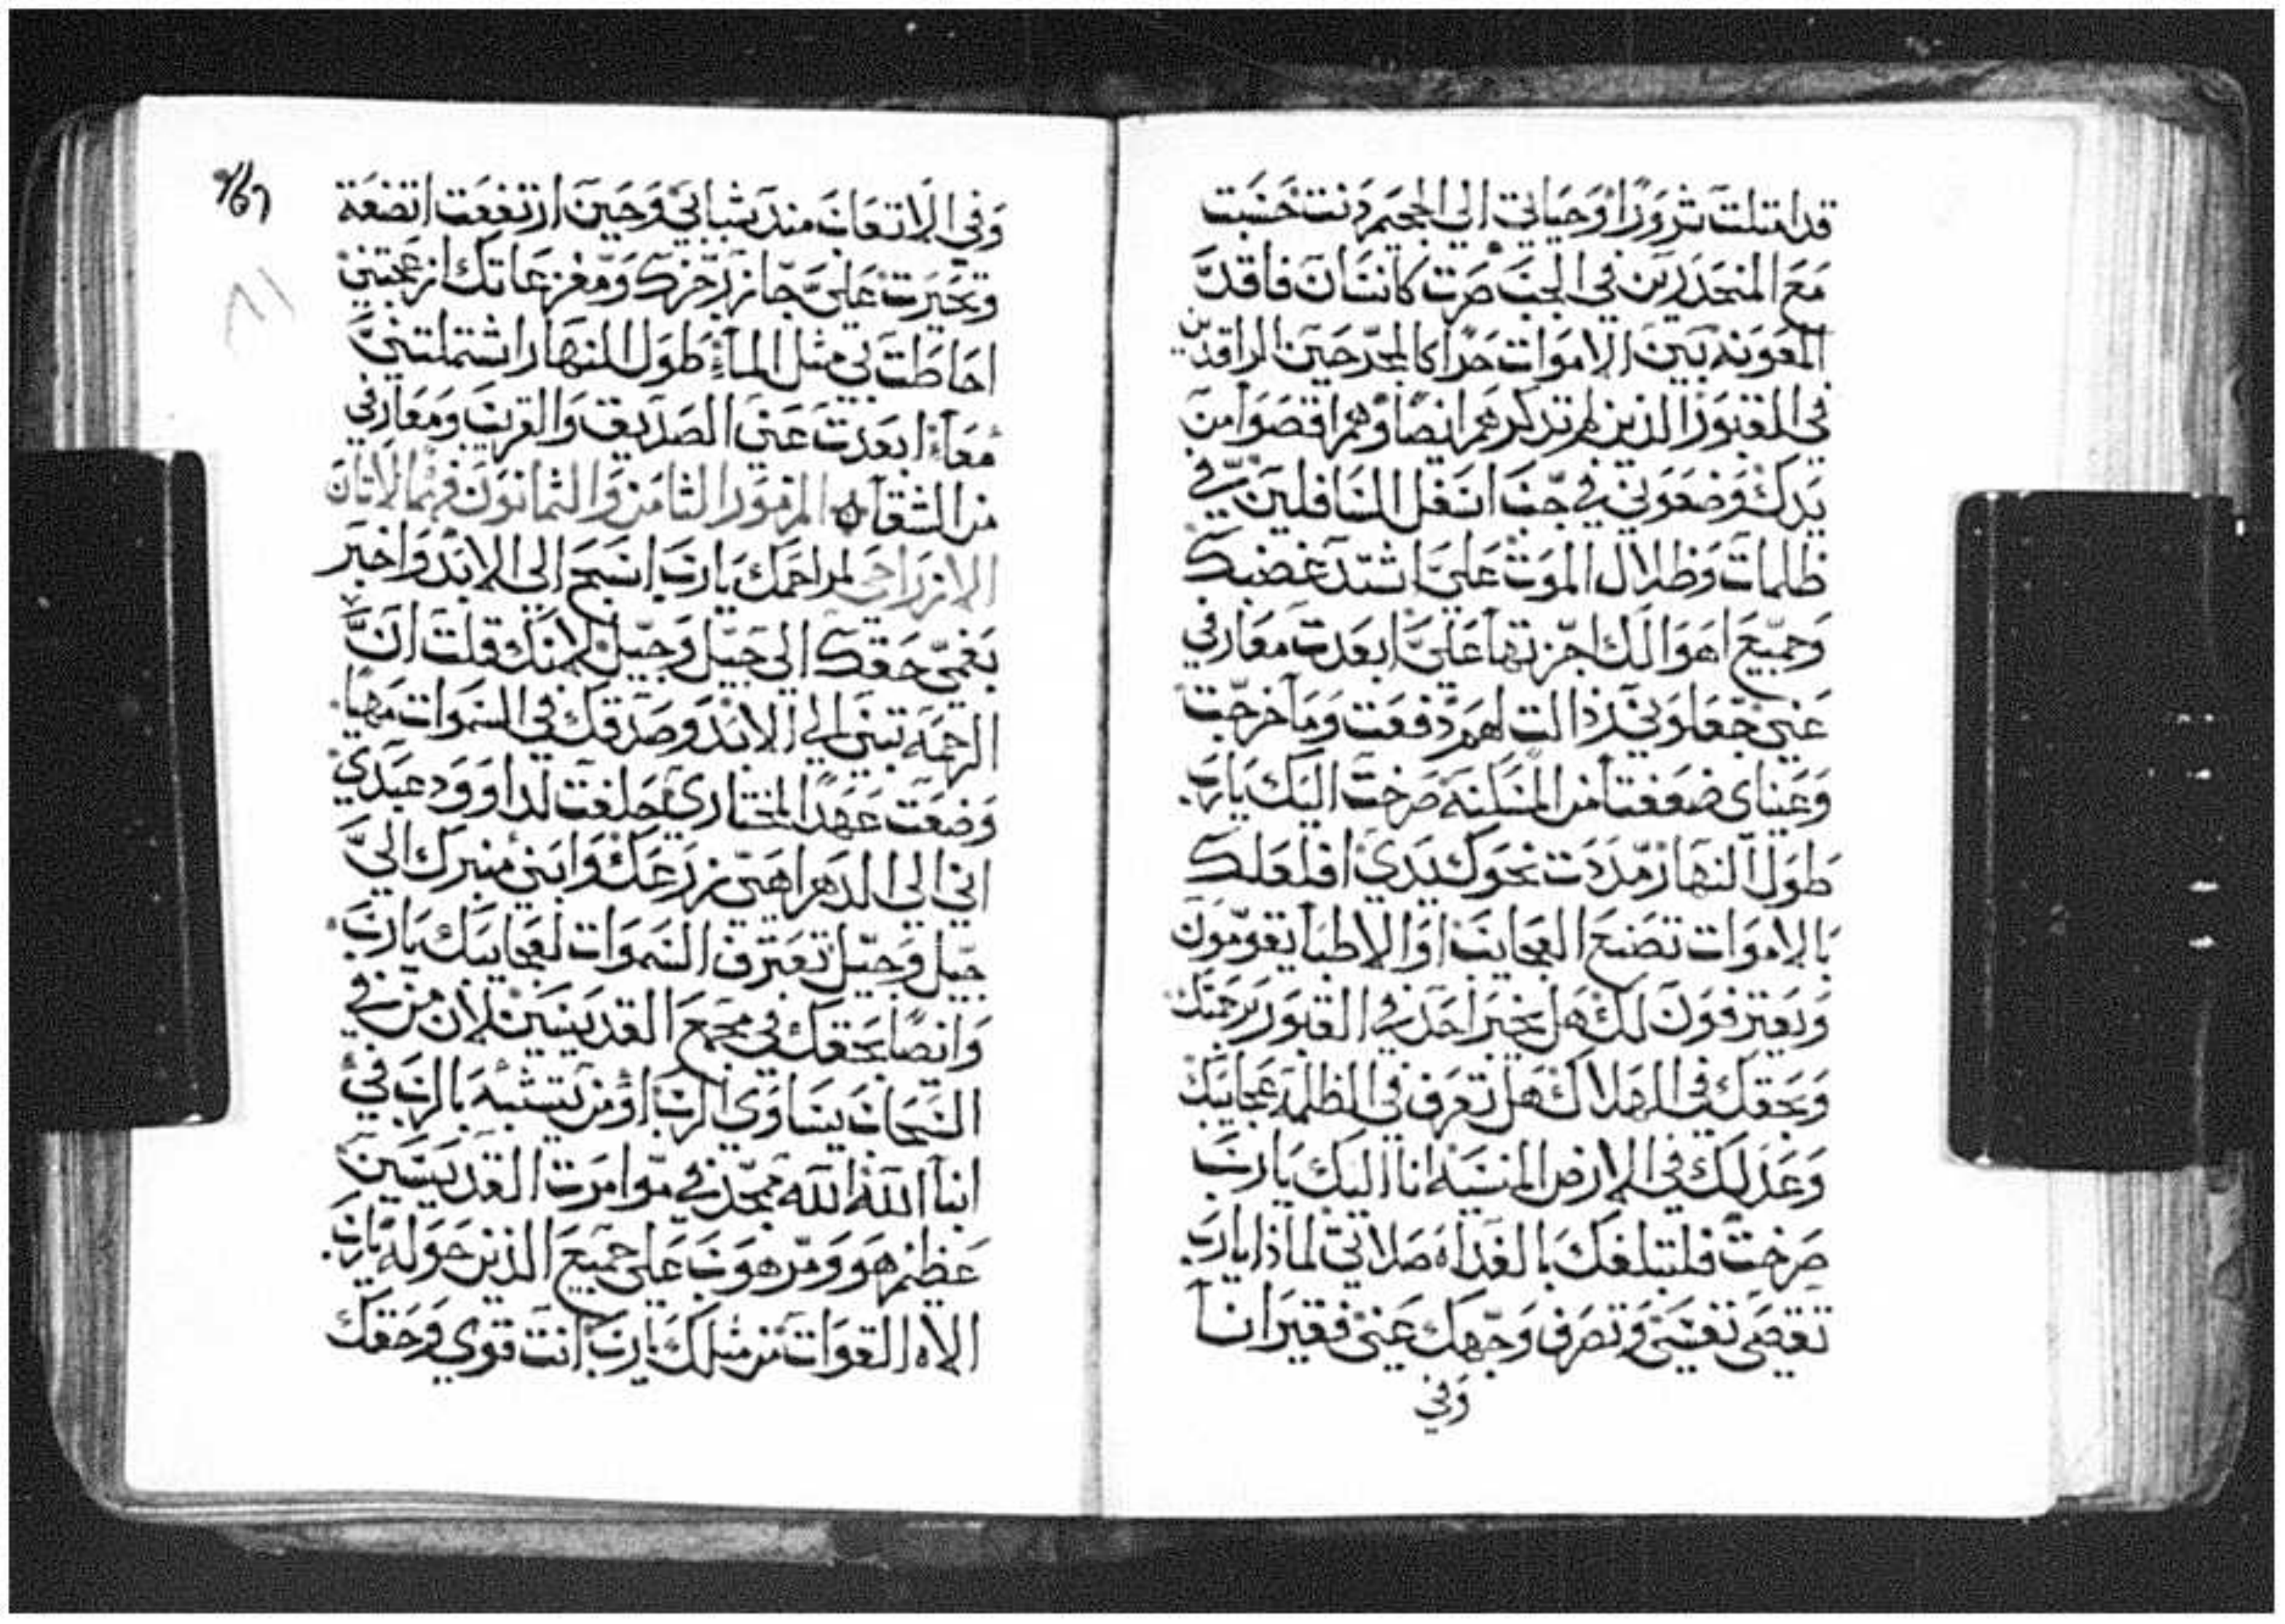 قد امتلت شرورًا وحياتي الى الجحيم دنت حسبت
مع المنحدرين في الجب صرت كانسان فاقد
المعونه بين الاموات حرًا كالمجرحين الراقدين
في القبور الذين لم تذكرهم ايضًا وهم اقصوا من
يدك وضعوني في جب اسفل السافلين في
ظلمات وظلال الموت علي اشتد غضبك
وجميع اهوالك اجزتها علي ابعدت معارفي
عني جعلوني رذالت لهم دفعت وما خرجت
وعيناي ضعفتا من المسكنه صرخت اليك يارب
طول النهار مددت نحوك يدي افلعلك
بالاموات تصنع العجايب او الاطبا يقومون
ويعترفون لك هل يخبر احد في القبور برحمتك
وبحقك في الهلاك هل تعرف في الظلمه عجايبك
وعدلك في الارض المنسيه انا اليك يارب
صرخت فلتبلغك بالغداه صلاتي لماذا يارب
تقصي نفسي وتصرف وجهك عني فقير انا
وفي
وفي الاتعاب منذ شبابي وحين ارتفعت اتضعة
وتحيرت علي جاز رجزك ومفزعاتك ازعجتني
احاطت بي مثل الماء طول النهار اشتملتني
معاء ابعدت عني الصديق والقريب ومعارفي
من الشقا ه المزمور الثامن والثمانون فهمًا لاتان
الازراحي لمراحمك يارب اسبح الى الابد واخبر
بفمي حقك الى جيل وجيل لانك قلت ان
الرحمه تبنى الى الابد وصدقك في السموات مهيا
وضعت عهدًا لمختاري حلفت لداوود عبدي
اني الى الدهر اهيي زرعك وابني منبرك الى
جيل وجيل تعترف السموات لعجايبك يارب
وايضًا بحقك في مجمع القديسين لان من في
السحاب يساوي الرب او من يتشبه بالرب في
ابنا الله الله ممجد في موامرت القديسين
عظيم هو ومرهوب على جميع الذين حوله يارب
الاه القوات من مثلك يارب انت قوي وحقك